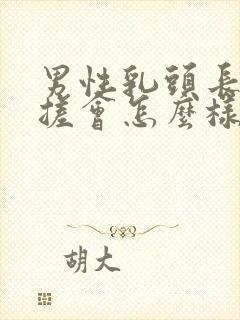 男性乳頭長
搓會怎麼樣
胡大